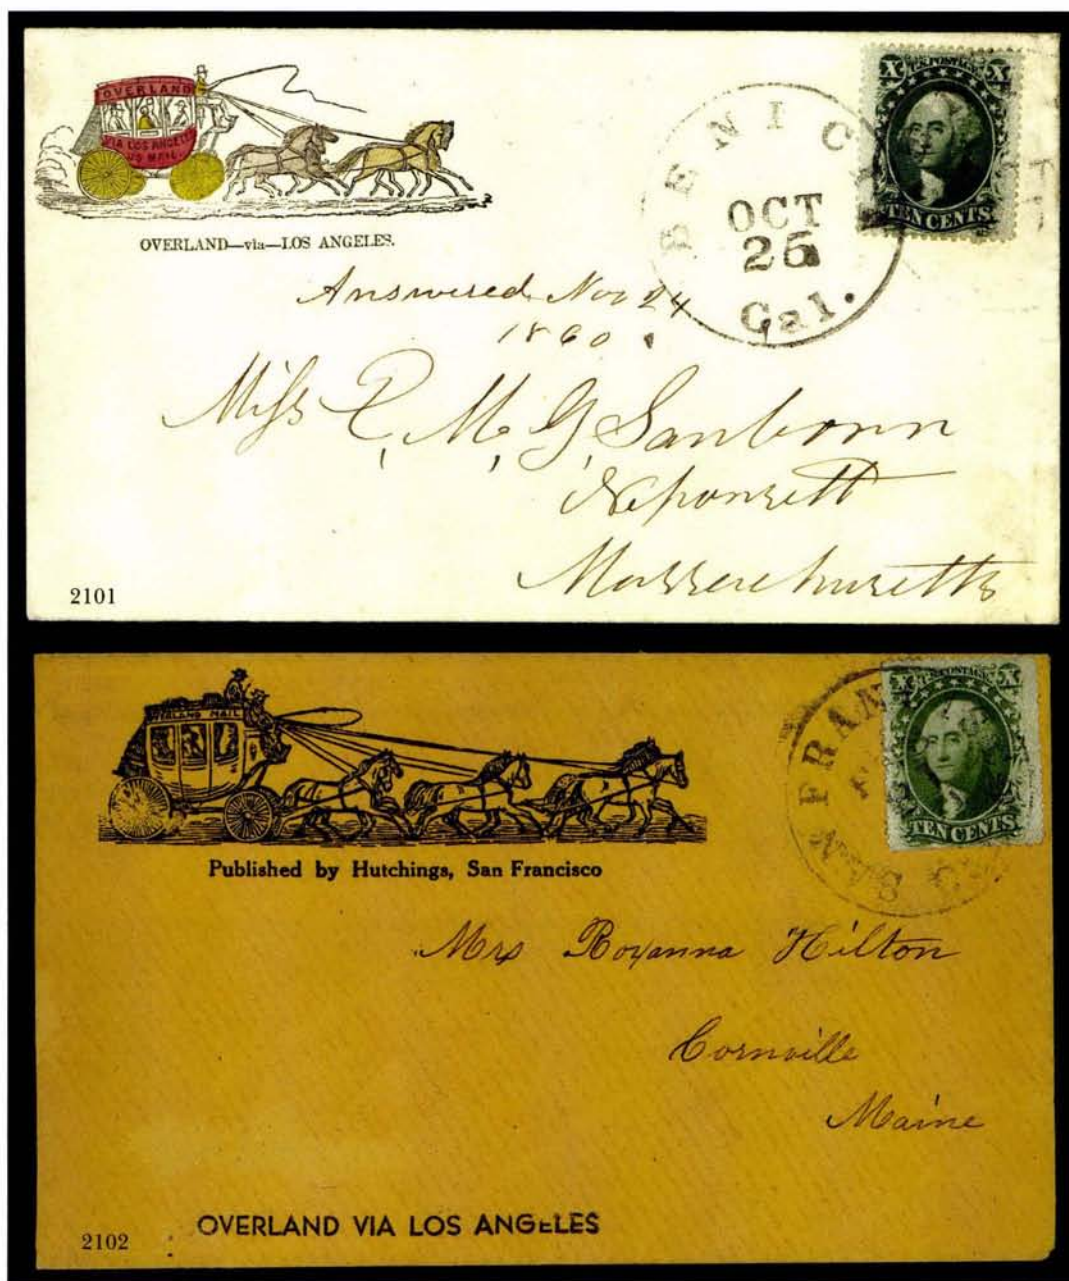 OVERLAND
VIA LOS ANGELES
US MAIL.
OVERLAND—via—LOS ANGELES.
BENICIA
OCT
25
Cal.
X U.S. POSTAGE X
TEN CENTS
Answered Nov 24
1860.
Miss C. M. G. Sanborn
Neponsett
Massachusetts
2101
OVERLAND MAIL
Published by Hutchings, San Francisco
SAN FRAN
X U.S. POSTAGE X
TEN CENTS
Mrs Roxanna Hilton
Cornville
Maine
OVERLAND VIA LOS ANGELES
2102